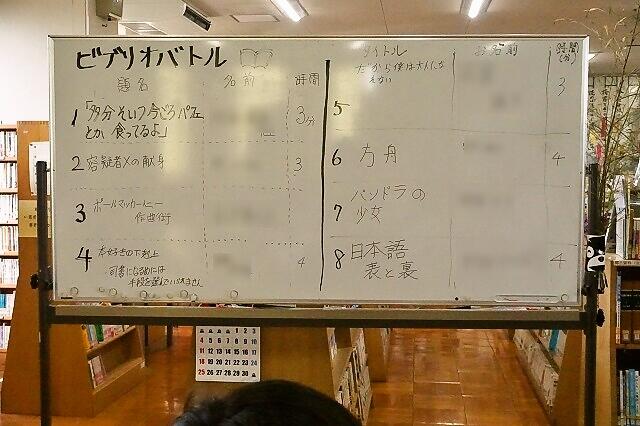 ビブリオバトル
題名 名前 時間
1 「多分そいつ今ごろパフェ
とか食ってるよ」
3分
2 容疑者Xの献身
3
3 ポールマッカートニー
作曲術
4 本好きの下剋上
司書になるためには
手段を選んでいられません
4
タイトル お名前 時間
(分)
だから僕は大人になれない
5
3
6 方舟
4
7 パンドラの
少女
8 日本語
表と裏
4
1 2 3
4 5 6 7 8 9 10
11 12 13 14 15 16 17
18 19 20 21 22 23 24
25 26 27 28 29 30